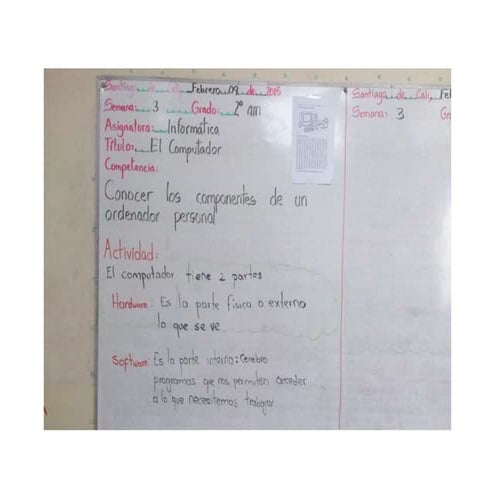 Santiago de Cali, Febrero 09 de 2015
Semana: 3 Grado: 2°
Asignatura: Informática
Título: El Computador
Competencia:
Conocer los componentes de un
ordenador personal
Actividad:
El computador tiene 2 partes
Hardware: Es la parte física o externo
lo que se ve
Software: Es la parte interna: Cerebro
programas que nos permiten acceder
a lo que necesitemos trabajar.
Santiago de Cali,
Semana: 3